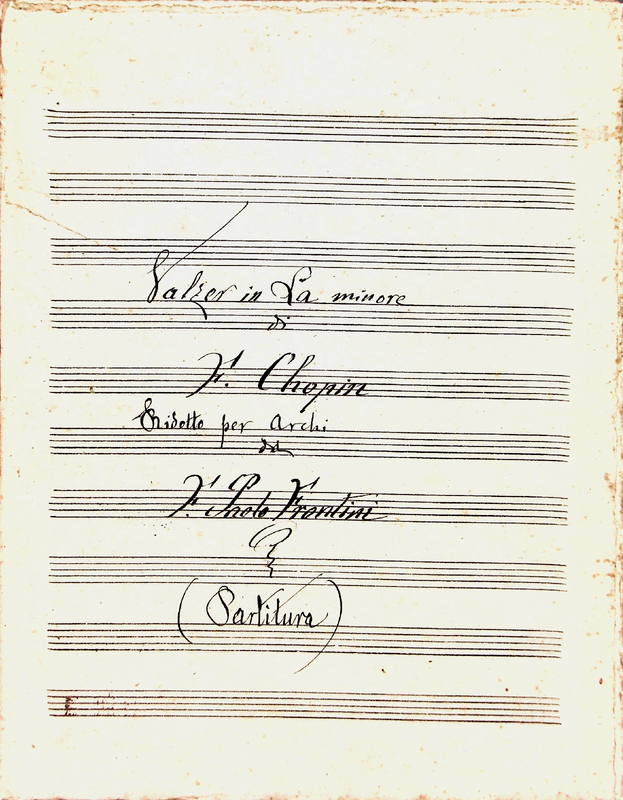 Valzer in La minore
di
F. Chopin
Ridotto per Archi
da
F. Paolo Frontini
(Partitura)